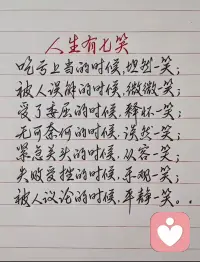 人生有七笑
吃亏上当的时候，坦然一笑；
被人误解的时候，微微一笑；
受了委屈的时候，释怀一笑；
无可奈何的时候，淡然一笑；
紧急关头的时候，从容一笑；
失败受挫的时候，乐观一笑；
被人议论的时候，平静一笑。